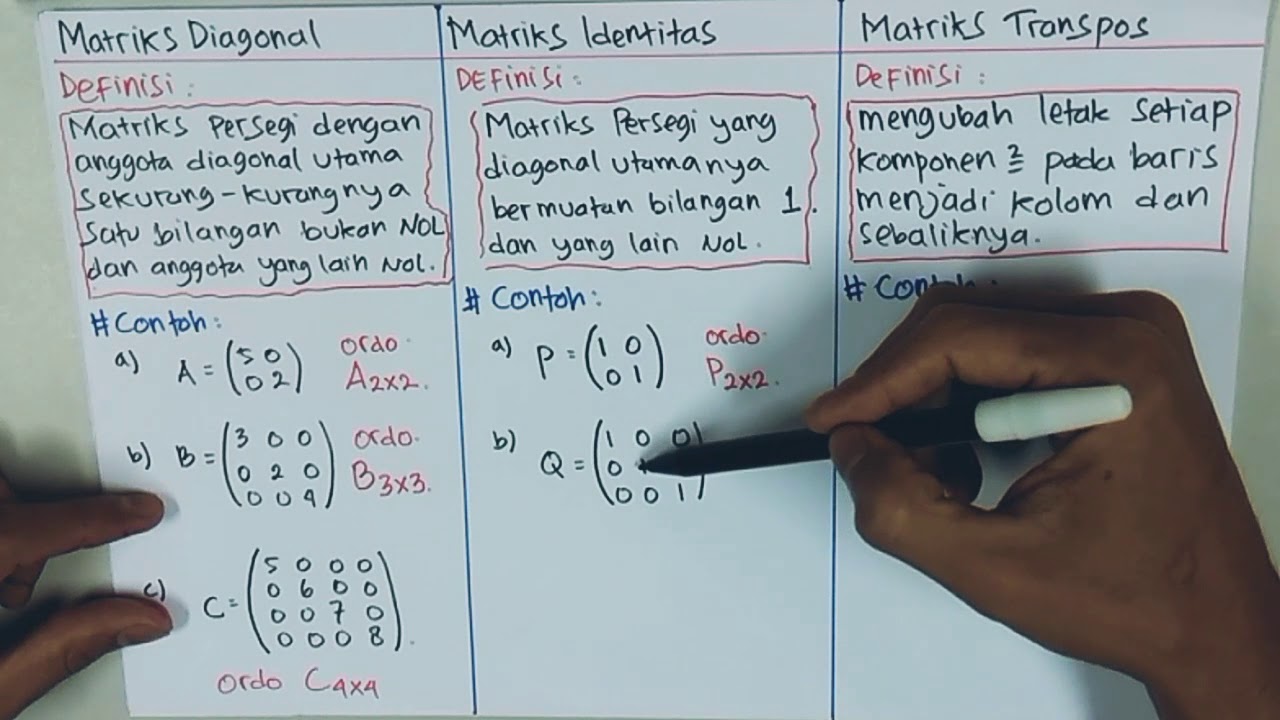 Matriks Diagonal
Definisi :
Matriks Persegi dengan
anggota diagonal utama
sekurang-kurangnya
satu bilangan bukan NOL
dan anggota yang lain NOL.
# Contoh :
a) A = (5 0
0 2)
ordo
A2x2.
b) B = (3 0 0
0 2 0
0 0 9)
ordo.
B3x3.
c) C = (5 0 0 0
0 6 0 0
0 0 7 0
0 0 0 8).
ordo C4x4
Matriks Identitas
DEFINISI :
Matriks Persegi yang
diagonal utamanya
bermuatan bilangan 1.
dan yang lain NOL.
# Contoh :
a) P = (1 0
0 1)
ordo.
P2x2.
b) Q = (1 0 0
0
0 0 1)
Matriks Transpos
Definisi :
mengubah letak setiap
komponen 2 pada baris
menjadi kolom dan
sebaliknya.
#